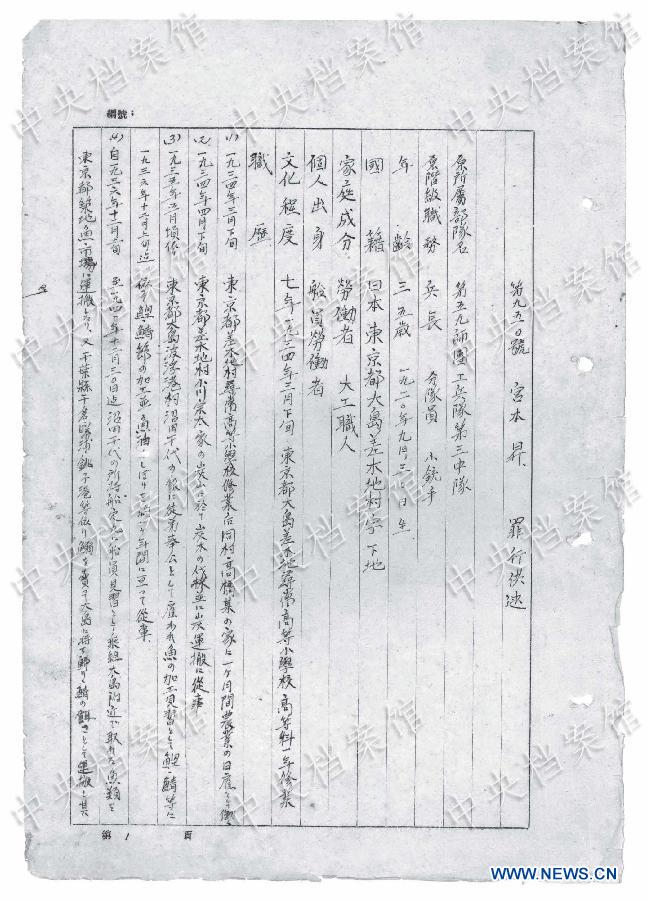 編號：
第九五〇號　宮本昇　罪行供述
原所屬部隊名　第五九師團工兵隊第三中隊
原階級職務　兵長　分隊員　小銃手
年齡　三五歲　一九二〇年九月三〇日生
國籍　日本東京都大島差木地村字下地
家庭成分　勞働者　大工職人
個人出身　船員勞働者
文化程度　七年一九三四年三月下旬　東京都大島差木地尋常高等小學校高等科一年修業
職歷
(1) 一九三四年三月下旬　東京都差木地村尋常高等小學校修業后同村高橋某の家に一ヶ月間農業の日雇
(2) 一九三四年四月下旬　東京都差木地村小川宗太家の炭山に於り炭木の伐採並に山炭運搬に從事
(3) 一九三五年三月頃依　東京都大島波浮港村沼田千代の報に徒弟奉公として雇われ魚の加工見習として鰹、鯖等に
一九三六年十二月上旬迄　依る鰹鯖節の加工並に魚油しぼり年間に亘って從事
(4) 自一九三六年十二月上旬　至一九四〇年十二月三〇日迄沼田千代の所持船に船員見習として乘組大島附近で取れた魚類を
東京都築地魚市場に運搬、又千葉縣千倉、銚子港等依り鰯を買って大島に持下り鯖の餌として運搬し其
第1頁
中央档案馆
WWW.NEWS.CN